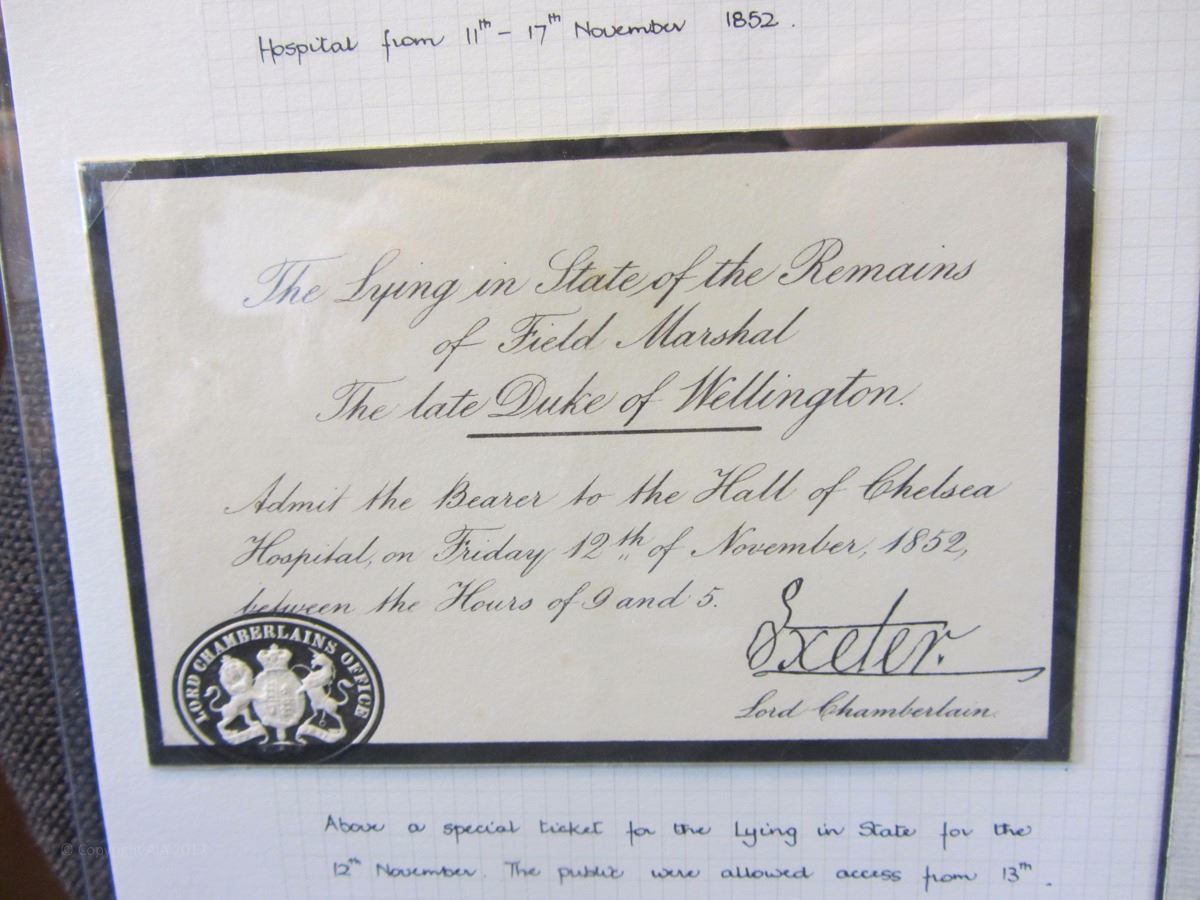 Hospital from 11th – 17th November 1852.
The Lying in State of the Remains
of Field Marshal
The late Duke of Wellington.
Admit the Bearer to the Hall of Chelsea
Hospital, on Friday 12th of November, 1852,
between the Hours of 9 and 5.
Exeter.
Lord Chamberlain.
LORD CHAMBERLAINS OFFICE
Above a special ticket for the Lying in State for the
12th November. The public were allowed access from 13th.
© Copyright AIA 2013